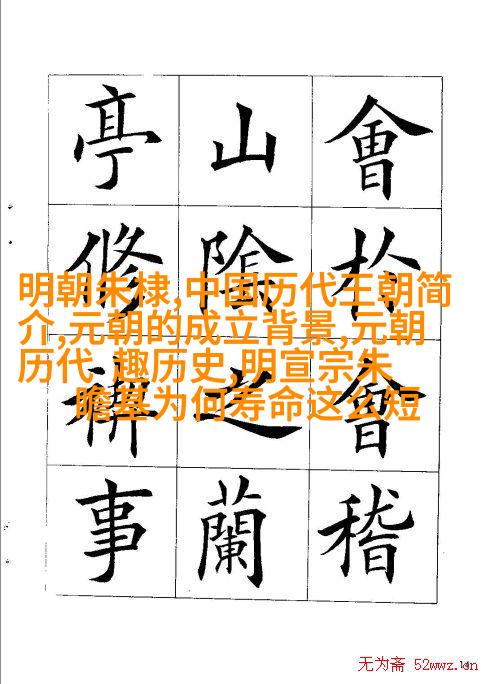 會扵會稽
山陰之蘭
亭脩禊事
明朝朱棣,中国历代王朝简
介,元朝的成立背景,元朝
历代 趣历史,明宣宗朱
瞻基为何寿命这么短
无为斋 52wwz.cn